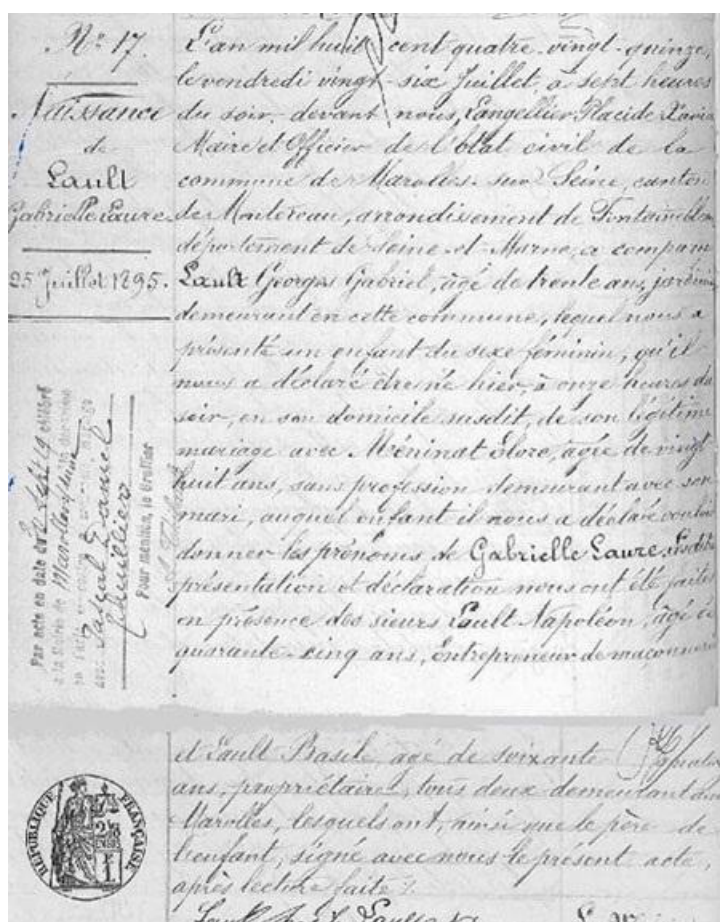 N° 17.
Naissance
de
Lault
Gabrielle Laure
25 Juillet 1895.
L'an mil huit cent quatre-vingt-quinze,
le vendredi vingt-six Juillet, à sept heures
du soir, devant nous, Langellier Placide Xavier
Maire et Officier de l'état civil de la
commune de Marolles-sur-Seine, canton
de Montereau, arrondissement de Fontainebleau
département de Seine-et-Marne, a comparu
Lault Georges Gabriel, âgé de trente ans, jardinier
demeurant en cette commune, lequel nous a
présenté un enfant du sexe féminin, qu'il
nous a déclaré être né hier, à onze heures du
soir, en son domicile susdit, de son légitime
mariage avec Méninat Flore, âgée de vingt
huit ans, sans profession demeurant avec son
mari, auquel enfant il nous a déclaré vouloir
donner les prénoms de Gabrielle Laure. Lesdites
présentation et déclaration nous ont été faites
en présence des sieurs Lault Napoléon, âgé de
quarante-cinq ans, Entrepreneur de maçonnerie
Par acte en date du
à la Mairie de Marolles
avec Pascal Daniel
Lhuillier
Pour mention, le Greffier
et Lault Basile, âgé de soixante
ans, propriétaire, tous deux demeurant à
Marolles, lesquels ont, ainsi que le père de
l'enfant, signé avec nous le présent acte,
après lecture faite.
Lault
RÉPUBLIQUE FRANÇAISE